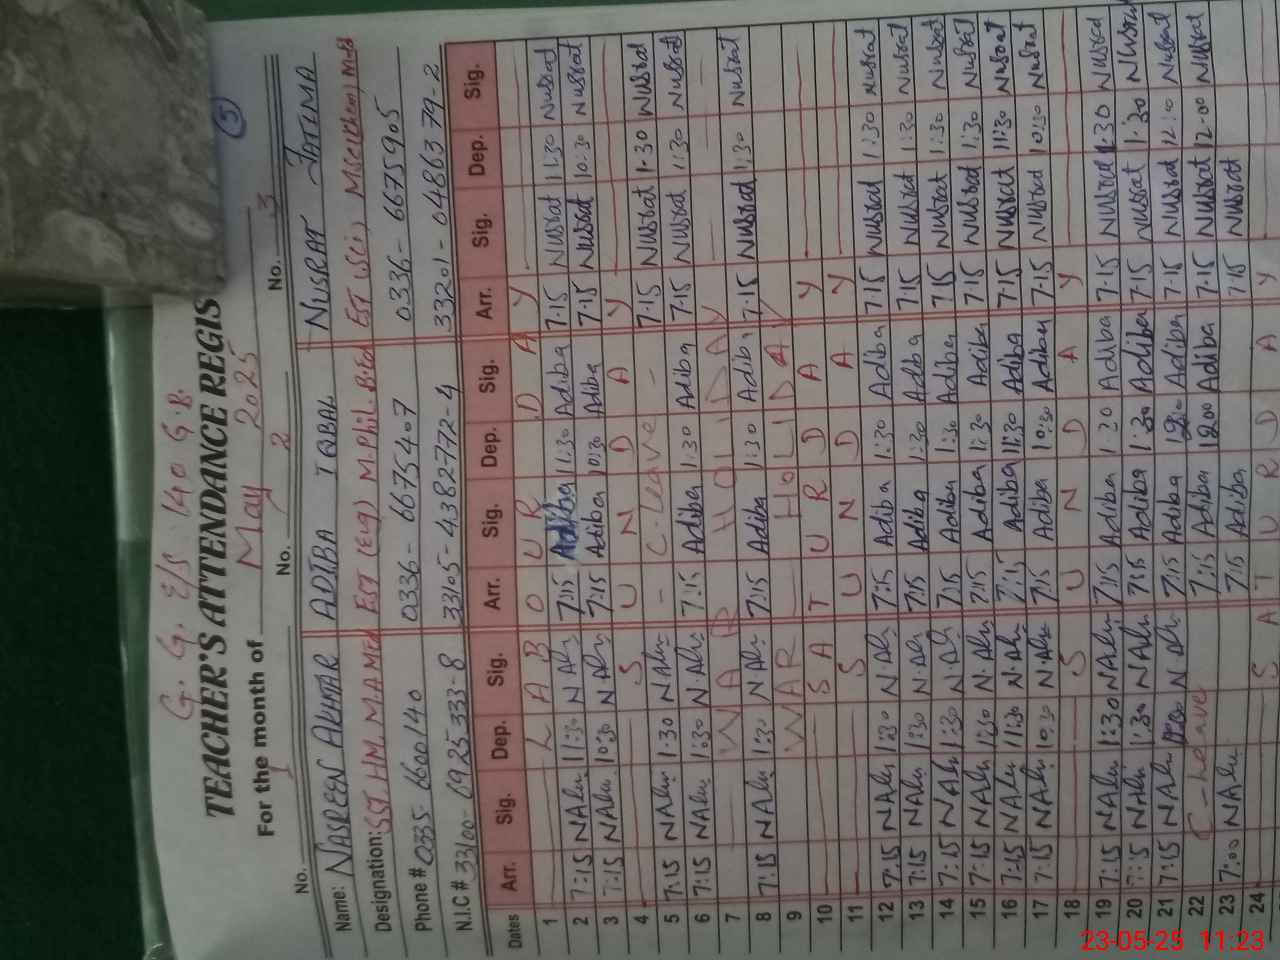 G. G. E/S 140 G.B.
TEACHER'S ATTENDANCE REGIS
For the month of May 2025
5
No. 1 No. 2 No. 3
Name: NASREEN AKHTAR ADIBA IQBAL NUSRAT FATIMA
Designation: SST HM, M.A MEd EST (Eg) M.Phil. B.Ed EST (Sci) MSc(Chem) MEd
Phone # 0335-6600140 0336-6675407 0336-6675905
N.I.C # 33100-6925333-8 33105-4382772-4 33201-0486379-2
Dates Arr. Sig. Dep. Sig. Arr. Sig. Dep. Sig. Arr. Sig. Dep. Sig.
1 LABOUR DAY
2 7:15 NAlu 11:30 NAlu 7:15 Adiba 11:30 Adiba 7:15 Nusrat 11:30 Nusrat
3 7:15 NAlu 10:30 NAlu 7:15 Adiba 10:30 Adiba 7:15 Nusrat 10:30 Nusrat
4 SUNDAY
5 7:15 NAlu 1:30 NAlu - C-Leave - 7:15 Nusrat 1:30 Nusrat
6 7:15 NAlu 1:30 N.Alu 7:15 Adiba 1:30 Adiba 7:15 Nusrat 1:30 Nusrat
7 WAR HOLIDAY
8 7:15 NAlu 1:30 NAlu 7:15 Adiba 1:30 Adiba 7:15 Nusrat 1:30 Nusrat
9 WAR HOLIDAY
10 SATURDAY
11 SUNDAY
12 7:15 NAlu 1:30 N.Alu 7:15 Adiba 1:30 Adiba 7:15 Nusrat 1:30 Nusrat
13 7:15 NAlu 1:30 N.Alu 7:15 Adiba 1:30 Adiba 7:15 Nusrat 1:30 Nusrat
14 7:15 NAlu 1:30 N.Alu 7:15 Adiba 1:30 Adiba 7:15 Nusrat 1:30 Nusrat
15 7:15 NAlu 1:30 N.Alu 7:15 Adiba 1:30 Adiba 7:15 Nusrat 1:30 Nusrat
16 7:15 NAlu 11:30 N.Alu 7:15 Adiba 11:30 Adiba 7:15 Nusrat 11:30 Nusrat
17 7:15 NAlu 10:30 N.Alu 7:15 Adiba 10:30 Adiba 7:15 Nusrat 10:30 Nusrat
18 SUNDAY
19 7:15 NAlu 1:30 NAlu 7:15 Adiba 1:30 Adiba 7:15 Nusrat 1:30 Nusrat
20 7:15 NAlu 1:30 NAlu 7:15 Adiba 1:30 Adiba 7:15 Nusrat 1:30 Nusrat
21 7:15 NAlu N Alu 7:15 Adiba Adiba 7:15 Nusrat 12:00 Nusrat
22 C-Leave 7:15 Adiba 12:00 Adiba 7:15 Nusrat 12:00 Nusrat
23 7:00 NAlu 7:15 Adiba 7:15 Nusrat
24 SATURDAY
23-05-25 11:23